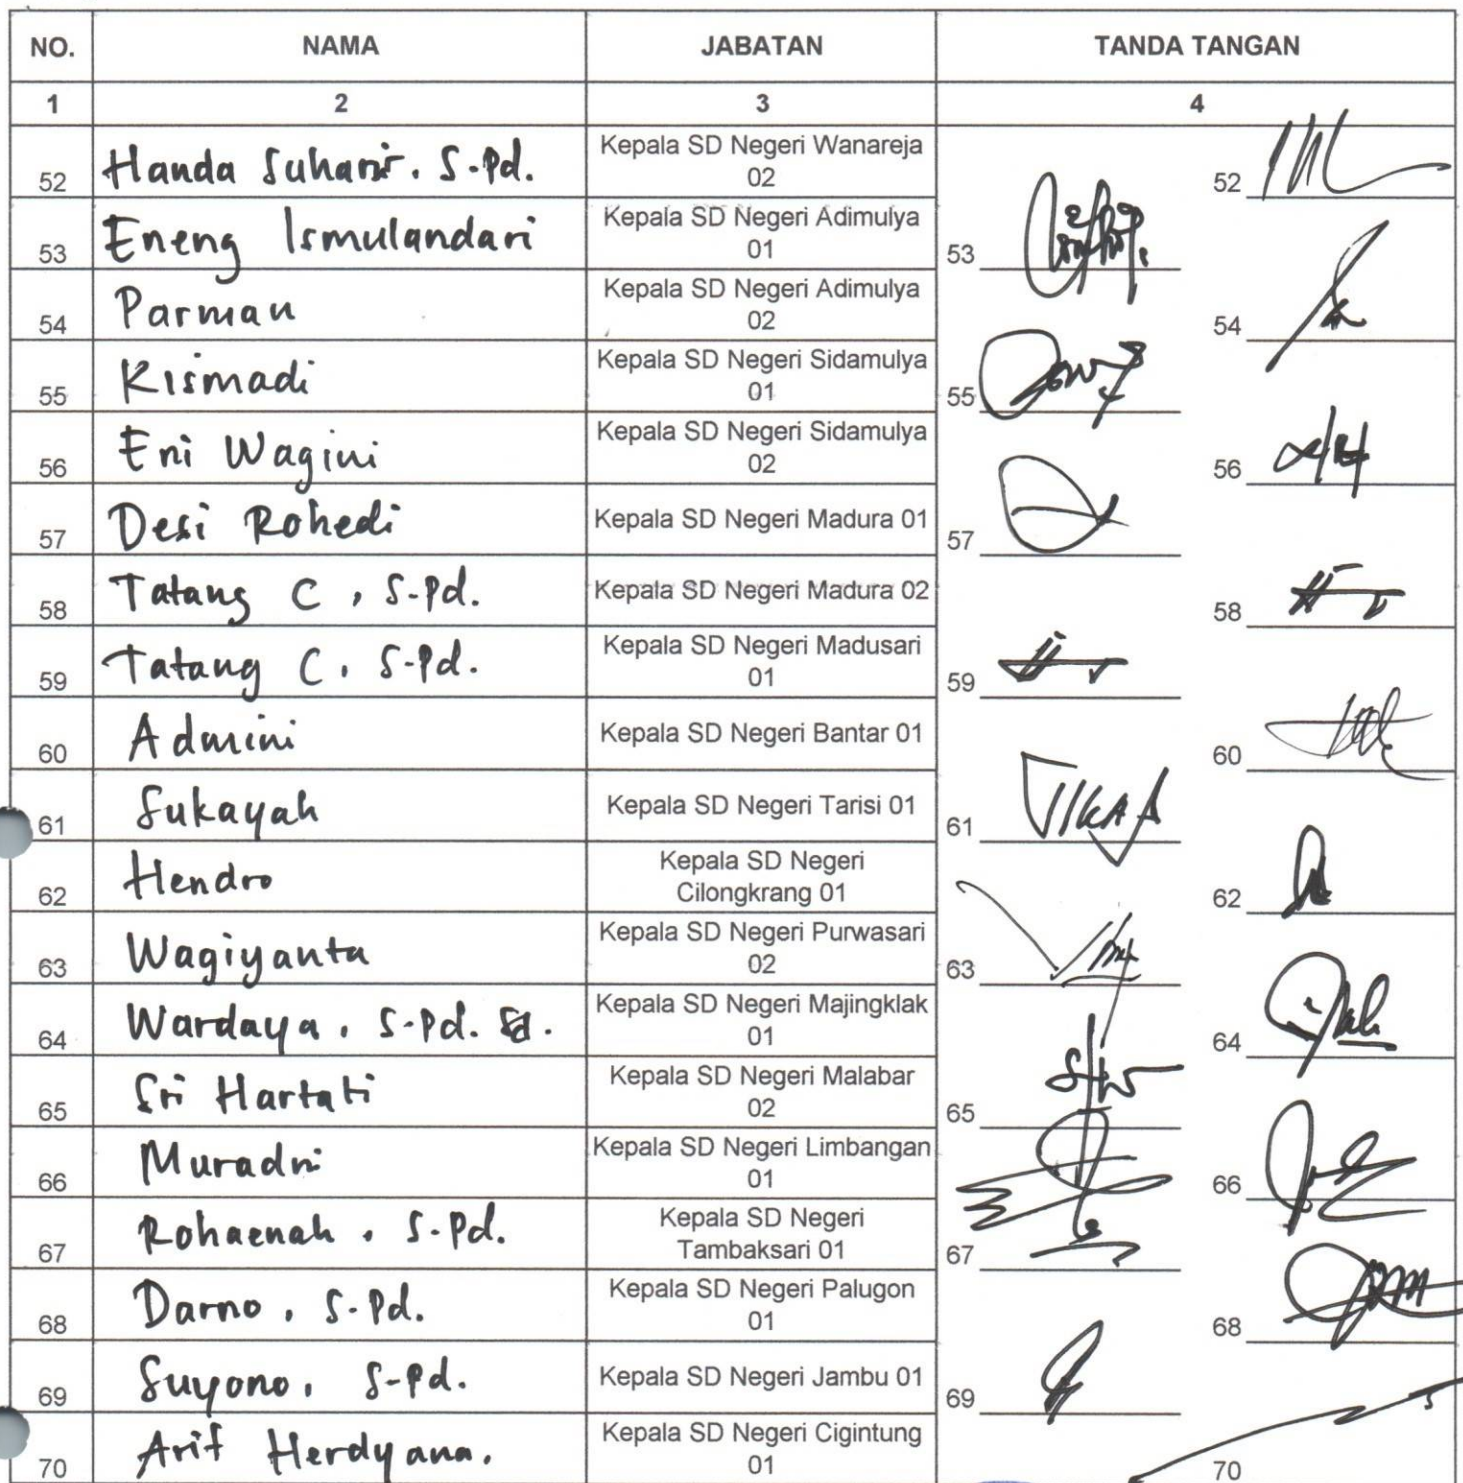 NO. NAMA JABATAN TANDA TANGAN
1 2 3 4
52 Handa Suharir. S-Pd. Kepala SD Negeri Wanareja 02 52
53 Eneng Ismulandari Kepala SD Negeri Adimulya 01 53
54 Parman Kepala SD Negeri Adimulya 02 54
55 Kismadi Kepala SD Negeri Sidamulya 01 55
56 Eni Wagini Kepala SD Negeri Sidamulya 02 56
57 Desi Rohedi Kepala SD Negeri Madura 01 57
58 Tatang C, S-Pd. Kepala SD Negeri Madura 02 58
59 Tatang C, S-Pd. Kepala SD Negeri Madusari 01 59
60 Admini Kepala SD Negeri Bantar 01 60
61 Sukayah Kepala SD Negeri Tarisi 01 61
62 Hendro Kepala SD Negeri Cilongkrang 01 62
63 Wagiyanta Kepala SD Negeri Purwasari 02 63
64 Wardaya, S-Pd. Sd. Kepala SD Negeri Majingklak 01 64
65 Sri Hartati Kepala SD Negeri Malabar 02 65
66 Muradri Kepala SD Negeri Limbangan 01 66
67 Rohaenah, S-Pd. Kepala SD Negeri Tambaksari 01 67
68 Darno, S-Pd. Kepala SD Negeri Palugon 01 68
69 Suyono, S-Pd. Kepala SD Negeri Jambu 01 69
70 Arif Herdyana. Kepala SD Negeri Cigintung 01 70